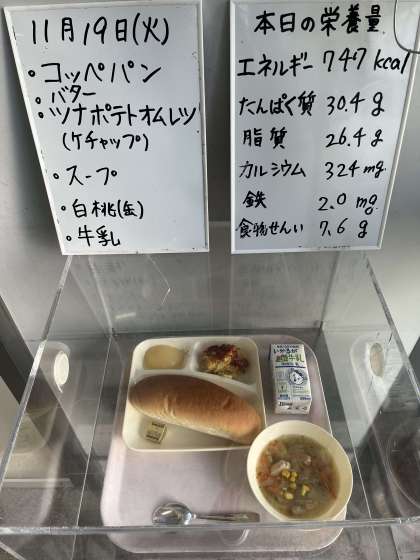 11月19日(火)
・コッペパン
・バター
・ツナポテトオムレツ
(ケチャップ)
・スープ
・白桃(缶)
・牛乳
本日の栄養量
エネルギー 747 kcal
たんぱく質 30.4 g
脂質 26.4 g
カルシウム 324 mg
鉄 2.0 mg
食物せんい 7.6 g
いかるが
牛乳